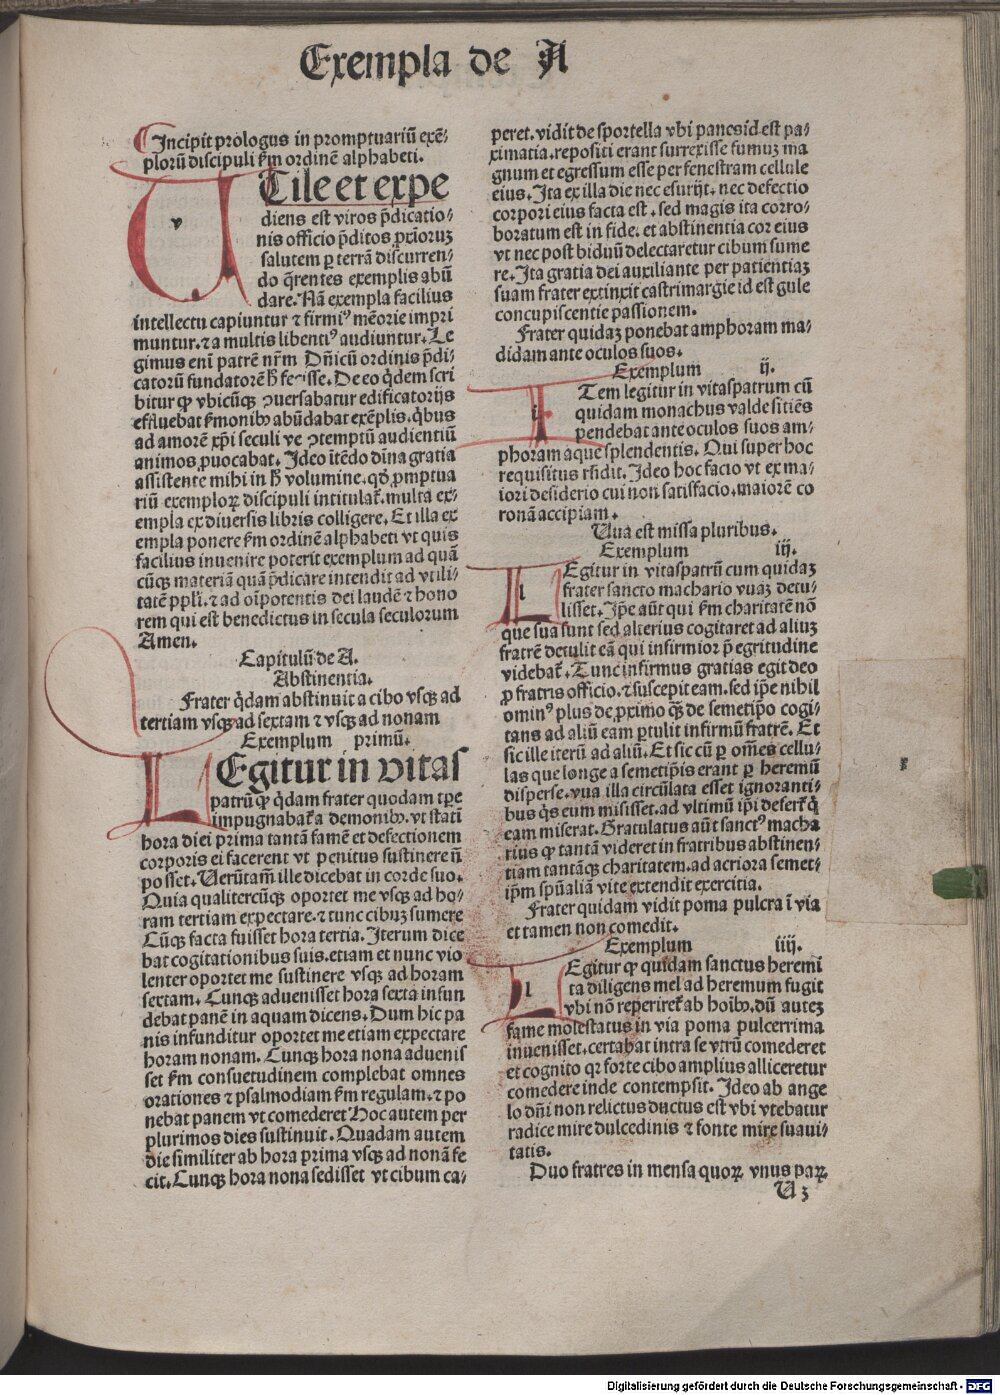 Exempla de A
Incipit prologus in promptuariū exē⸗
plorū discipuli ẜm ordinē alphabeti.
UTile et expe
v
diens est viros p̄dicatio⸗
nis officio p̄ditos ꝓximoꝝ
salutem ꝑ terrā discurren⸗
do q̄rentes exemplis abū
dare. Nā exempla facilius
intellectu capiuntur ⁊ firmi⁹ mēorie impri
muntur. ⁊ a multis libenti⁹ audiuntur. Le
gimus enī patrē nr̄m Dn̄icū ordinis p̄di⸗
catorū fundatorē h̄ fecisse. De eo q̄dem scri
bitur ꝙ vbicūqꝫ ꝯuersabatur edificatorijs
effluebat ẜmonibꝰ abūdabat exēplis. q̄bus
ad amorē xp̄i seculi ve ꝯtemptū audientiū
animos ꝓuocabat. Ideo ītēdo dīna gratia
assistente mihi in h̄ volumine. qd̓ ꝓmptua
riū exemploꝝ discipuli intitulat̄. multa ex⸗
empla ex diuersis libris colligere. Et illa ex
empla ponere ẜm ordinē alphabeti vt quis
facilius inuenire poterit exemplum ad quā
cūqꝫ materiā quā p̄dicare intendit ad vtili⸗
tatē pplī. ⁊ ad oīpotentis dei laudē ⁊ hono
rem qui est benedictus in secula seculorum
Amen.
Capitulū de A.
Abstinentia.
Frater q̄dam abstinuit a cibo vsqꝫ ad
tertiam vsqꝫ ad sextam ⁊ vsqꝫ ad nonam
Exemplum primū.
LEgitur in vitas
patrū ꝙ q̄dam frater quodam tꝑe
impugnabat̄ a demonibꝰ. vt stati
hora diei prima tantā famē et defectionem
corporis ei facerent vt penitus sustinere nō
posset. Uerūtam̄ ille dicebat in corde suo.
Quia qualitercūqꝫ oportet me vsqꝫ ad ho⸗
ram tertiam expectare. ⁊ tunc cibuꝫ sumere
Cūqꝫ facta fuisset hora tertia. Iterum dice
bat cogitationibus suis. etiam et nunc vio
lenter oportet me sustinere vsqꝫ ad horam
sextam. Cunqꝫ aduenisset hora sexta infun
debat panē in aquam dicens. Dum hic pa
nis infunditur oportet me etiam expectare
horam nonam. Cunqꝫ hora nona aduenis
set ẜm consuetudinem complebat omnes
orationes ⁊ psalmodiam ẜm regulam. ⁊ po
nebat panem vt comederet Hoc autem per
plurimos dies sustinuit. Quadam autem
die similiter ab hora prima vsqꝫ ad nonā fe
cit. Cunqꝫ hora nona sedisset vt cibum ca⸗
peret. vidit de sportella vbi panes id est pa⸗
ximatia. repositi erant surrexisse fumuꝫ ma
gnum et egressum esse per fenestram cellule
eius. Ita ex illa die nec esurijt. nec defectio
corpori eius facta est. sed magis ita corro⸗
boratum est in fide. et abstinentia cor eius
vt nec post biduū delectaretur cibum sume
re. Ita gratia dei auxiliante per patientiaꝫ
suam frater extinxit castrimargie id est gule
concupiscentie passionem.
Frater quidaꝫ ponebat amphoram ma⸗
didam ante oculos suos.
Exemplum ij.
ITem legitur in vitaspatrum cū
i
quidam monachus valde sitiēs
pendebat ante oculos suos am⸗
phoram aque splendentis. Qui super hoc
requisitus rn̄dit. Ideo hoc facio vt ex ma⸗
iori desiderio cui non satisfacio. maiorē co
ronā accipiam.
Uua est missa pluribus.
Exemplum iij.
LEgitur in vitaspatrū cum quidaꝫ
l
frater sancto machario vuaꝫ detu⸗
lisset. Ip̄e aūt qui ẜm charitatē nō
que sua sunt sed alterius cogitaret ad aliuꝫ
fratrē detulit eā qui infirmior p̄ egritudine
videbat̄. Tunc infirmus gratias egit deo
ꝓ fratris officio. ⁊ suscepit eam. sed ip̄e nihil
omin⁹ plus de ꝓximo qꝫ̄ de semetip̄o cogi⸗
tans ad aliū eam ꝑtulit infirmū fratrē. Et
sic ille iterū ad aliū. Et sic cū ꝑ om̄es cellu⸗
las que longe a semetip̄is erant ꝑ heremū
disperse. vua illa circūlata esset ignoranti⸗
bus q̄s eum misisset. ad vltimū ip̄i defert̄ q̄
eam miserat. Gratulatus aūt sanct⁹ macha
rius ꝙ tantā videret in fratribus abstinen⸗
tiam tantāqꝫ charitatem. ad acriora semet⸗
ip̄m spūaliā vite extendit exercitia.
Frater quidam vidit poma pulcra ī via
et tamen non comedit.
Exemplum iiij.
LEgitur ꝙ quidam sanctus heremi
l
ta diligens mel ad heremum fugit
vbi nō reperiret̄ ab hoībꝰ. dū auteꝫ
fame molestatus in via poma pulcerrima
inuenisset. certabat intra se vtrū comederet
et cognito qꝛ forte cibo amplius alliceretur
comedere inde contempsit. Ideo ab ange
lo dn̄i non relictus ductus est vbi vtebatur
radice mire dulcedinis ⁊ fonte mire suaui⸗
tatis.
Duo fratres in mensa quoꝝ vnus paꝝ
U 3
Digitalisierung gefördert durch die Deutsche Forschungsgemeinschaft - DFG